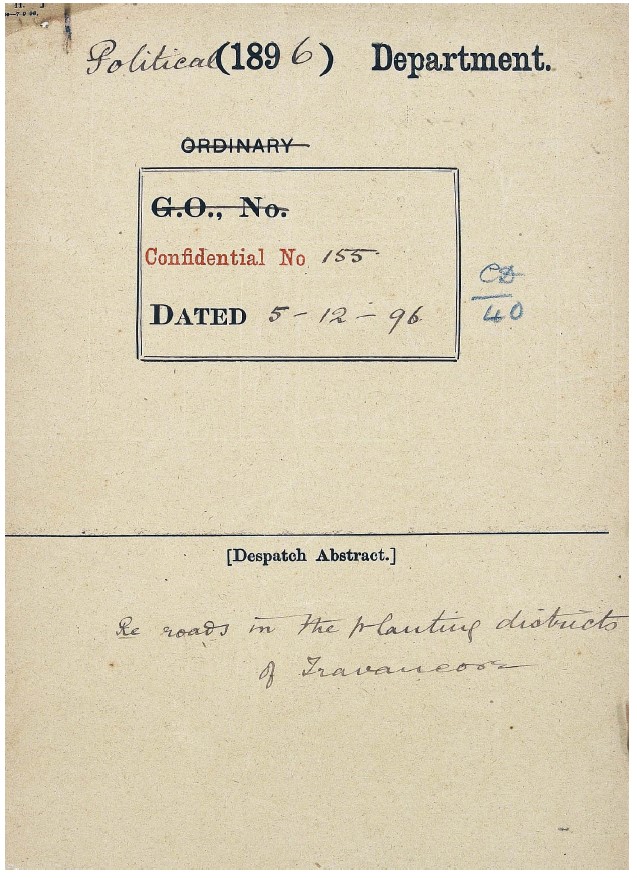 Political (1896) Department.
ORDINARY
G.O., No.
Confidential No 155.
DATED 5-12-96
CD
40
[Despatch Abstract.]
Re roads in the planting districts
of Travancore